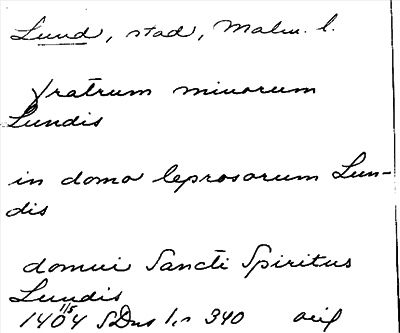 Lund, stad, Malm. l.
fratrum minorum
Lundis
in domo leprosorum Lun-
dis
domui Sancti Spiritus
Lundis
1404 1/5 SDns 1, s 340